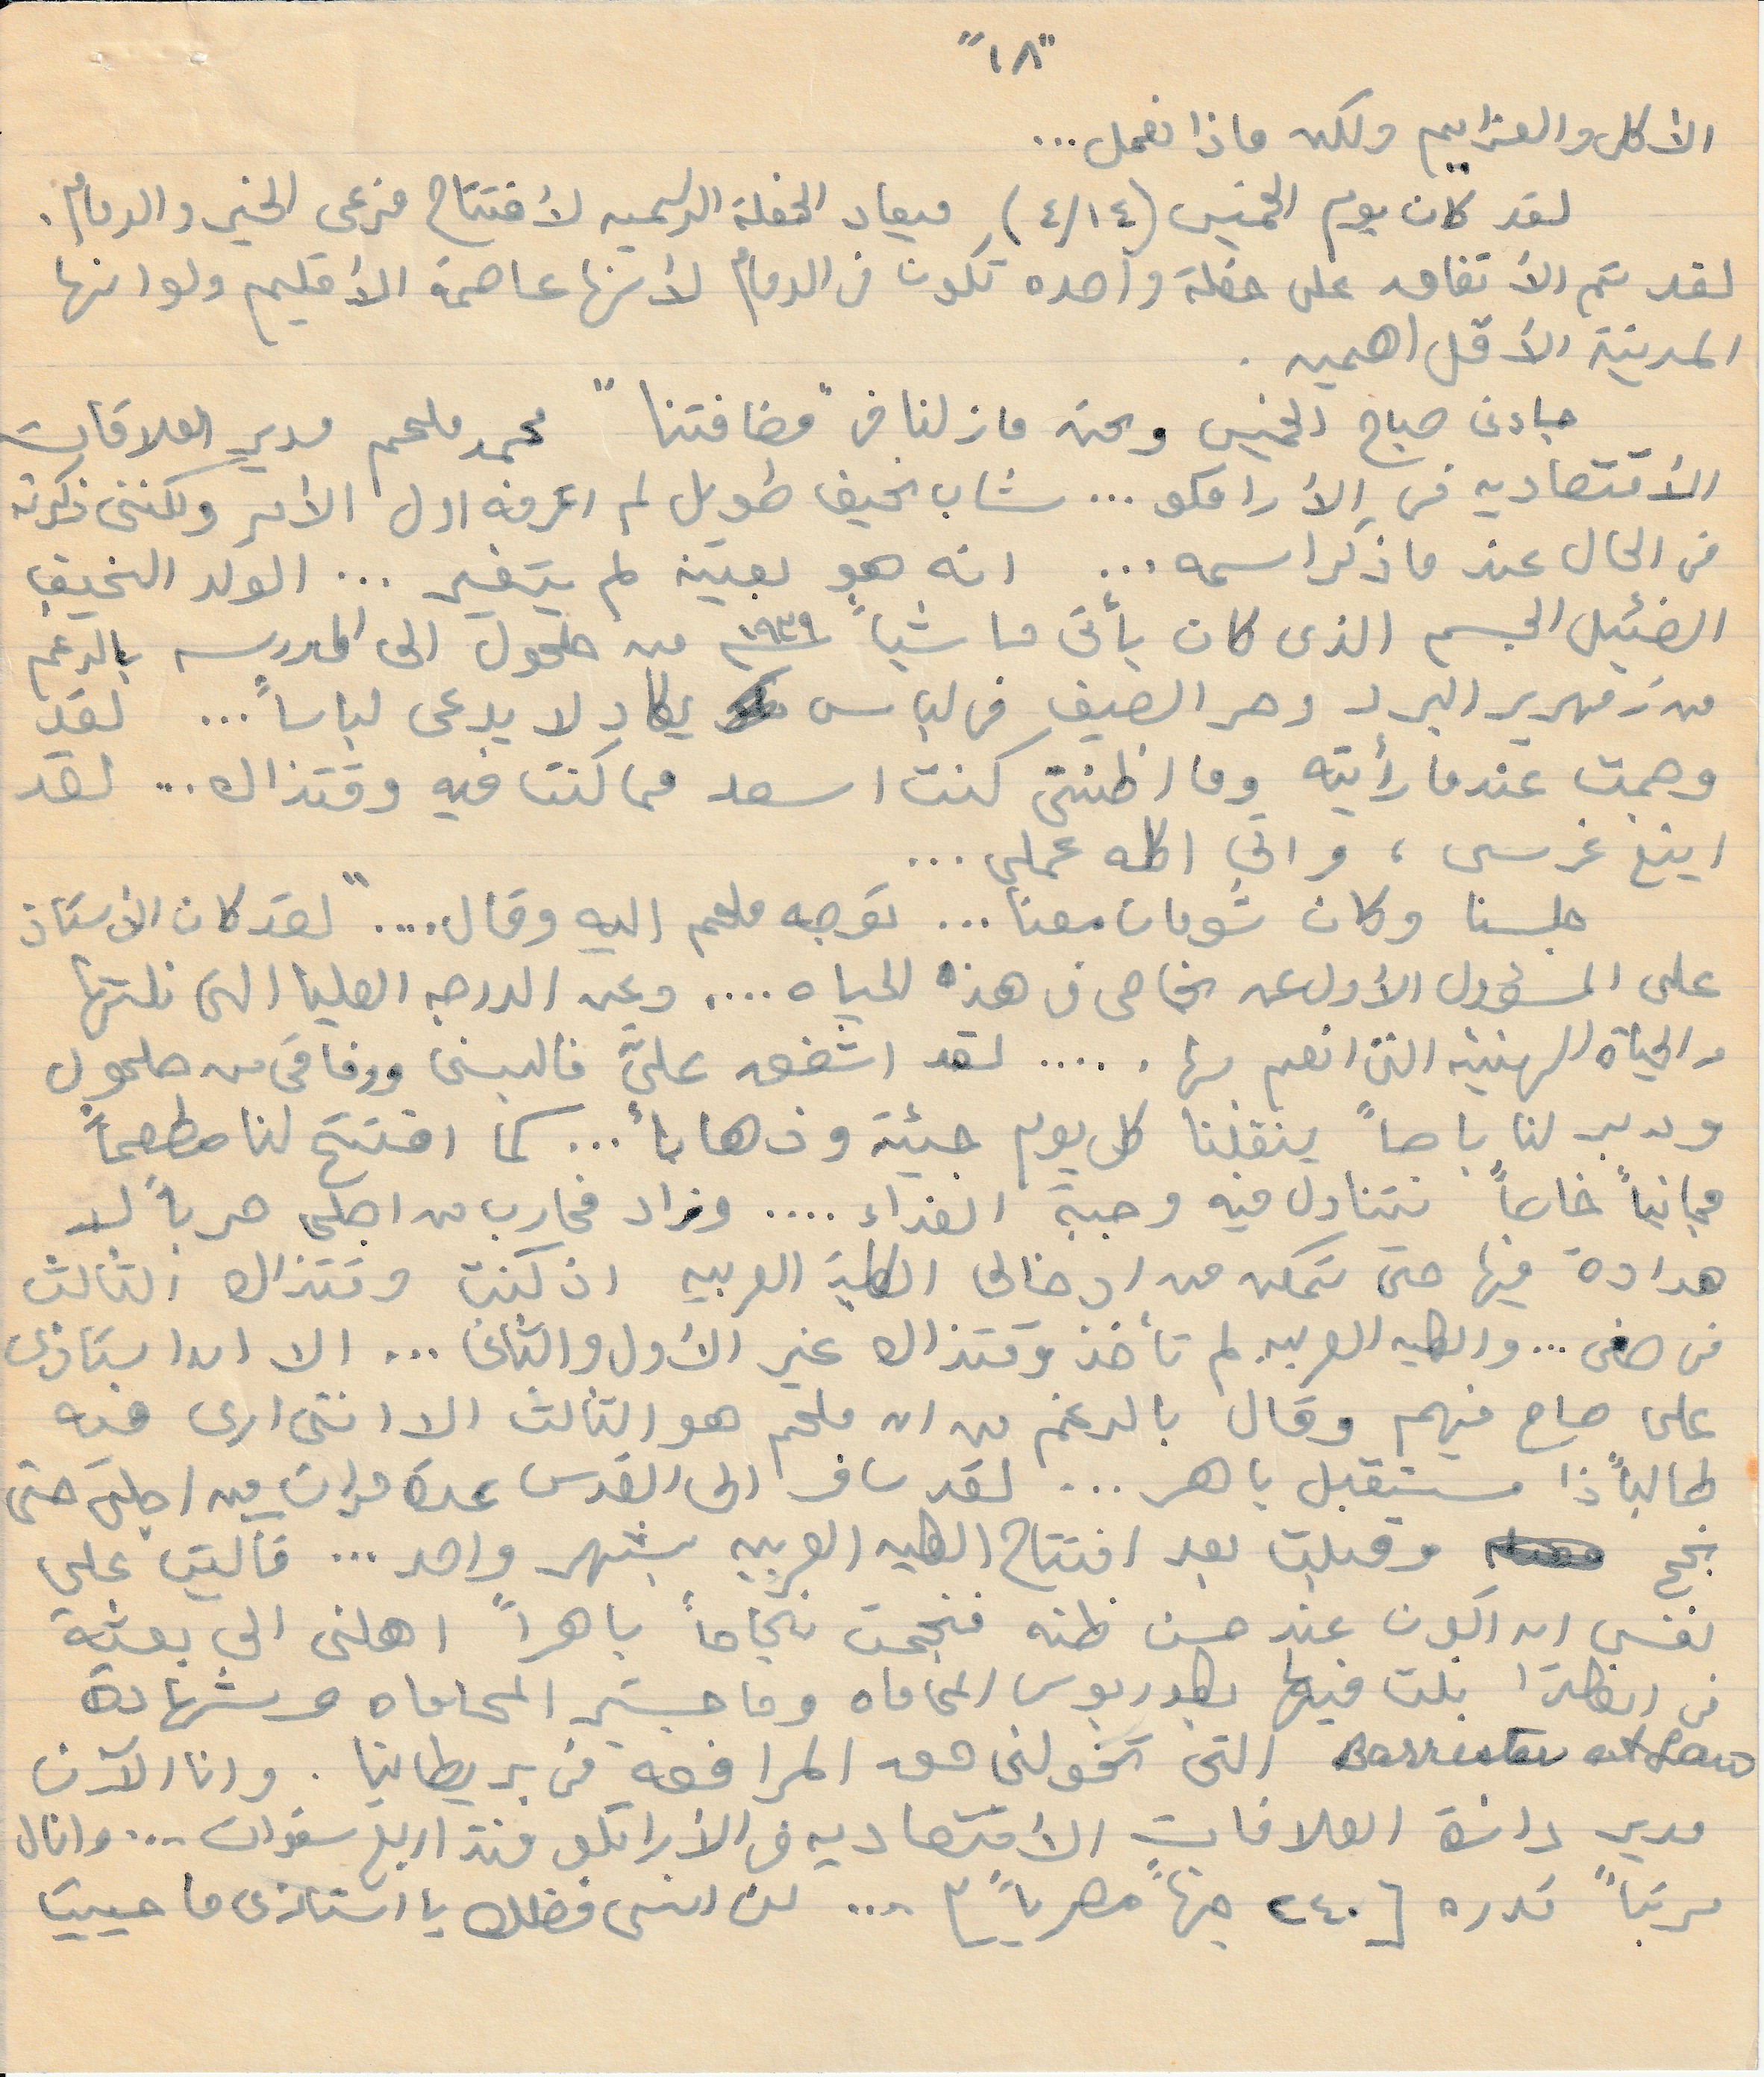 "١٨"
الأكل والعزايم ولكن ماذا نعمل...
لقد كان يوم الخميس (٤/١٤) ميعاد الحفلة الرسميه لأفتتاح فرعى الخبر والدمام.
لقد تم الأتفاق على حفلة واحده تكون فى الدمام لأنها عاصمة الأقليم ولو انها
المدينة الأقل اهميه.
جاءنى صباح الخميس ونحن مازلنا فى "مضافتنا" محمد ملحم مدير العلاقات
الأقتصاديه فى الأرامكو... شاب نحيف طويل لم اعرفه اول الأمر ولكننى ذكرته
فى الحال عندما ذكر اسمه... انه هو بعينه لم يتغير... الولد النحيف
الضئيل الجسم الذى كان يأتى ماشياً ١٩٣٩ من حلحول الى المدرسه بالرغم
من زمهرير البرد وحر الصيف فى لباس يكاد لا يدعى لباساً... لقد
وجمت عندما رأيته وما اظننى كنت اسعد مما كنت فيه وقتذاك... لقد
اينع غرسى، واتى اكله عملى...
جلسنا وكان شومان معنا... توجه ملحم اليه وقال.... "لقد كان الأستاذ
على المسؤول الأول عن نجاحى فى هذه الحياه.... وعن الدرجه العليا التى نلتها
والحياة الهنيئه التى انعم بها..... لقد اشفق علىَّ فالبسنى ورفاقى من حلحول
ودبر لنا باصاً ينقلنا كل يوم جيئة وذهاباً... كما افتتح لنا مطعماً
مجانياً خاصاً نتناول فيه وجبة الغداء.... وزاد فحارب من اجلى حرباً لا
هدادة فيها حتى تمكن من ادخالى الكلية العربيه اذ كنت وقتذاك الثالث
فى صفى... والكليه العربيه لم تأخذ وقتذاك غير الأول والثانى... الا ان استاذى
على صاح فيهم وقال بالرغم من ان ملحم هو الثالث الا اننى ارى فيه
طالباً ذا مستقبل باهر... لقد سافر الى القدس عدة مرات من اجلى حتى
نجح وقبلت بعد افتتاح الكليه العربيه بشهر واحد... فآليت على
نفسى ان اكون عند حسن ظنه فنجحت نجاحاً باهراً اهلنى الى بعثة
فى انكلترا نلت فيها بكلوريوس المحاماه وماجستير المحاماه وشهادة
Barrister at Law التى تخولنى حق المرافعه فى بريطانيا. وانا الآن
مدير دائرة العلاقات الأقتصاديه فى الأرامكو منذ اربع سنوات... وانال
مرتباً قدره [٢٤٠ جنيهاً مصرياً]... لن انسى فضلك يا استاذى ما حييت